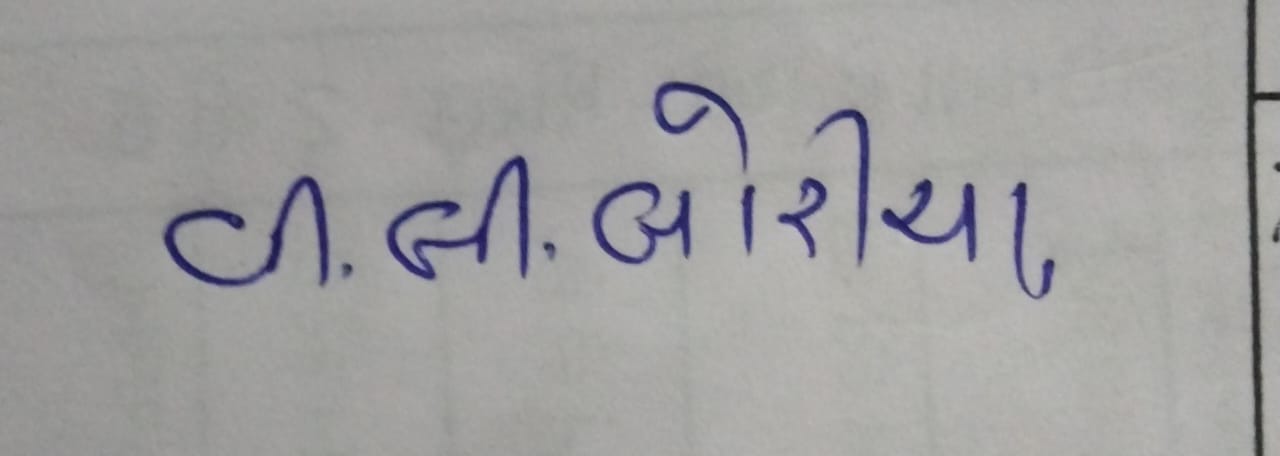 વી.બી.બોરીયા